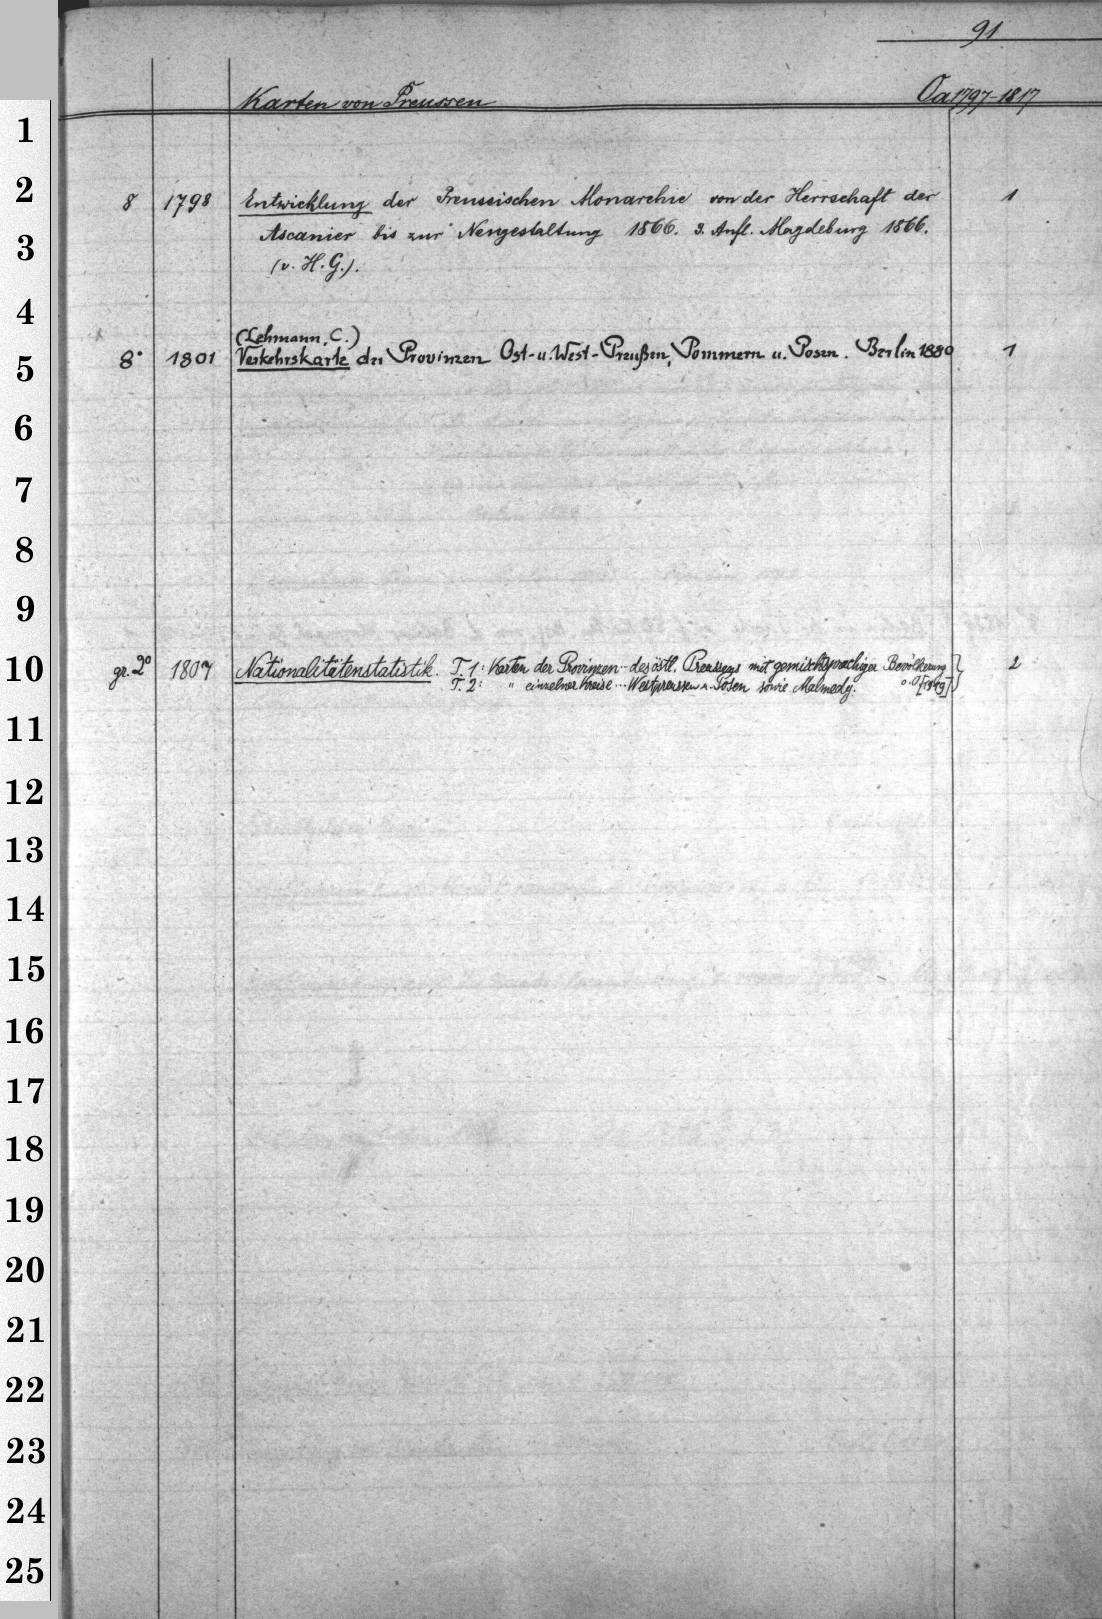 91
Karten von Preussen Oa 1797-1817
1
2
8 1798 Entwicklung der Preussischen Monarchie von der Herrschaft der 1
3
Ascanier bis zur Neugestaltung 1866. 3. Aufl. Magdeburg 1866.
(v. H. G.).
4
(Lehmann, C.)
5
8° 1801 Verkehrskarte der Provinzen Ost- u. West-Preußen, Pommern u. Posen. Berlin 1880 1
6
7
8
9
10
gr. 2° 1807 Nationalitätenstatistik. T. 1: Karten der Provinzen ... des östl. Preussens mit gemischtsprachiger Bevölkerung } 2
T. 2: " einzelner Kreise ... Westpreussen u. Posen sowie Malmedy. o. O. [1919]
11
12
13
14
15
16
17
18
19
20
21
22
23
24
25